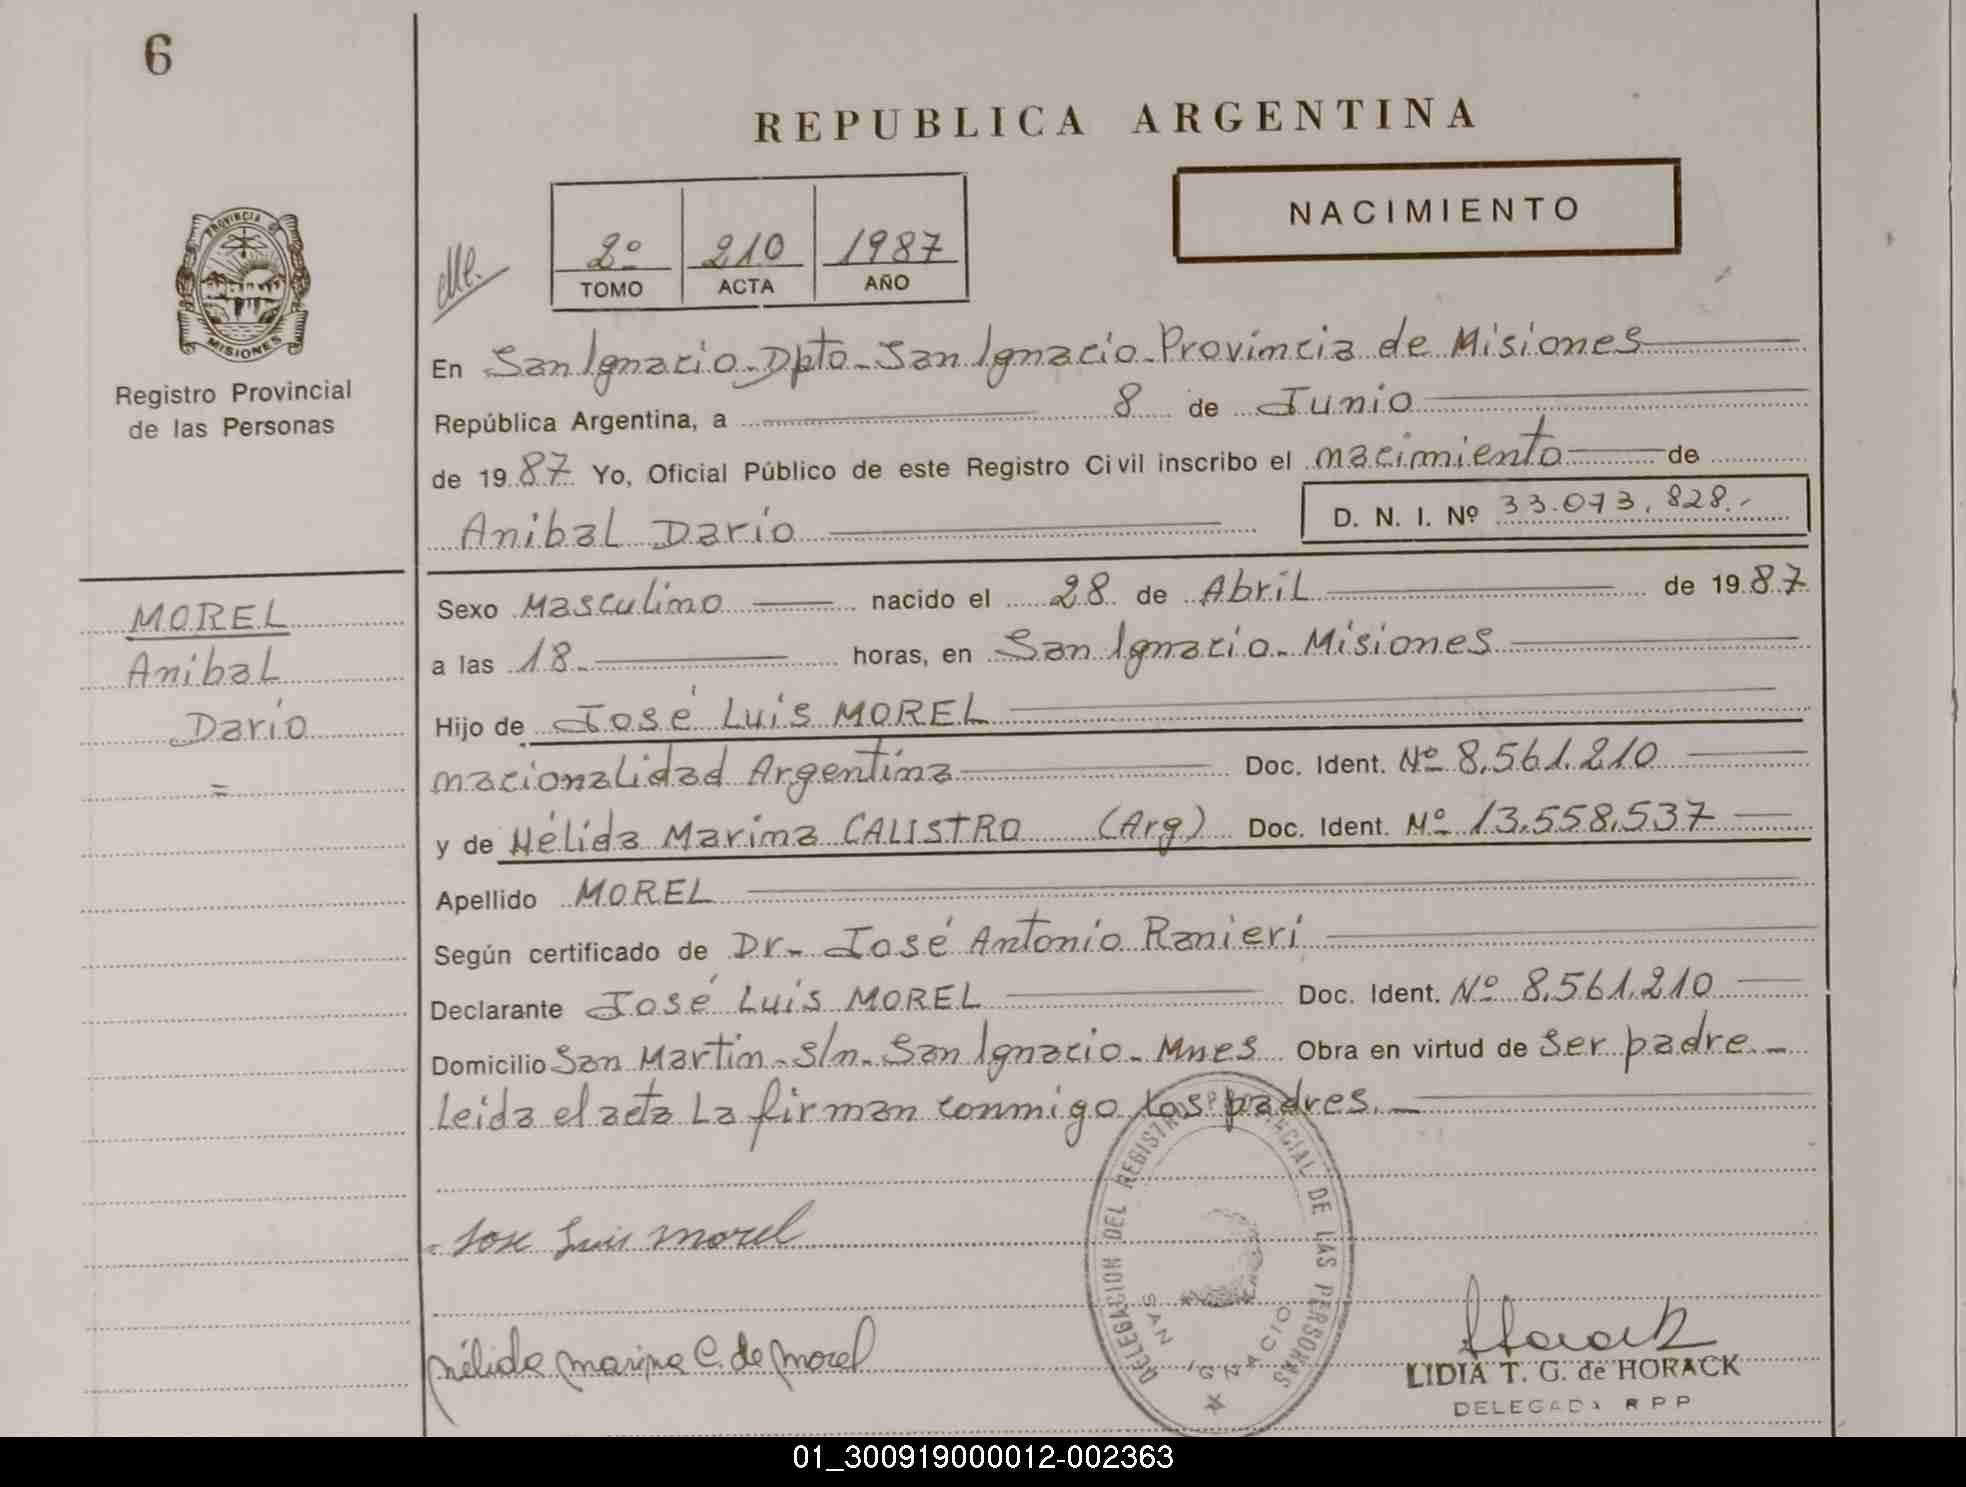 6
REPUBLICA ARGENTINA
NACIMIENTO
2º 210 1987
TOMO ACTA AÑO
PROVINCIA DE
MISIONES
Registro Provincial
de las Personas
En San Ignacio-Dpto-San Ignacio-Provincia de Misiones
República Argentina, a 8 de Junio
de 1987 Yo, Oficial Público de este Registro Civil inscribo el nacimiento de
Anibal Darío D. N. I. Nº 33.073.828.-
MOREL
Anibal
Darío
=
Sexo Masculino nacido el 28 de Abril de 1987
a las 18- horas, en San Ignacio- Misiones
Hijo de José Luis MOREL
nacionalidad Argentina Doc. Ident. Nº 8.561.210
y de Nélida Marina CALISTRO (Arg) Doc. Ident. Nº 13.558.537
Apellido MOREL
Según certificado de Dr- José Antonio Ranieri
Declarante José Luis MOREL Doc. Ident. Nº 8.561.210
Domicilio San Martín- s/n- San Ignacio- Mnes Obra en virtud de ser padre.-
Leida el acta La firman conmigo los padres.-
Jose Luis Morel
Nélida Marina C. de Morel
DELEGACION DEL REGISTRO PROVINCIAL DE LAS PERSONAS
SAN IGNACIO
Horack
LIDIA T. G. de HORACK
DELEGADA RPP
01_300919000012-002363